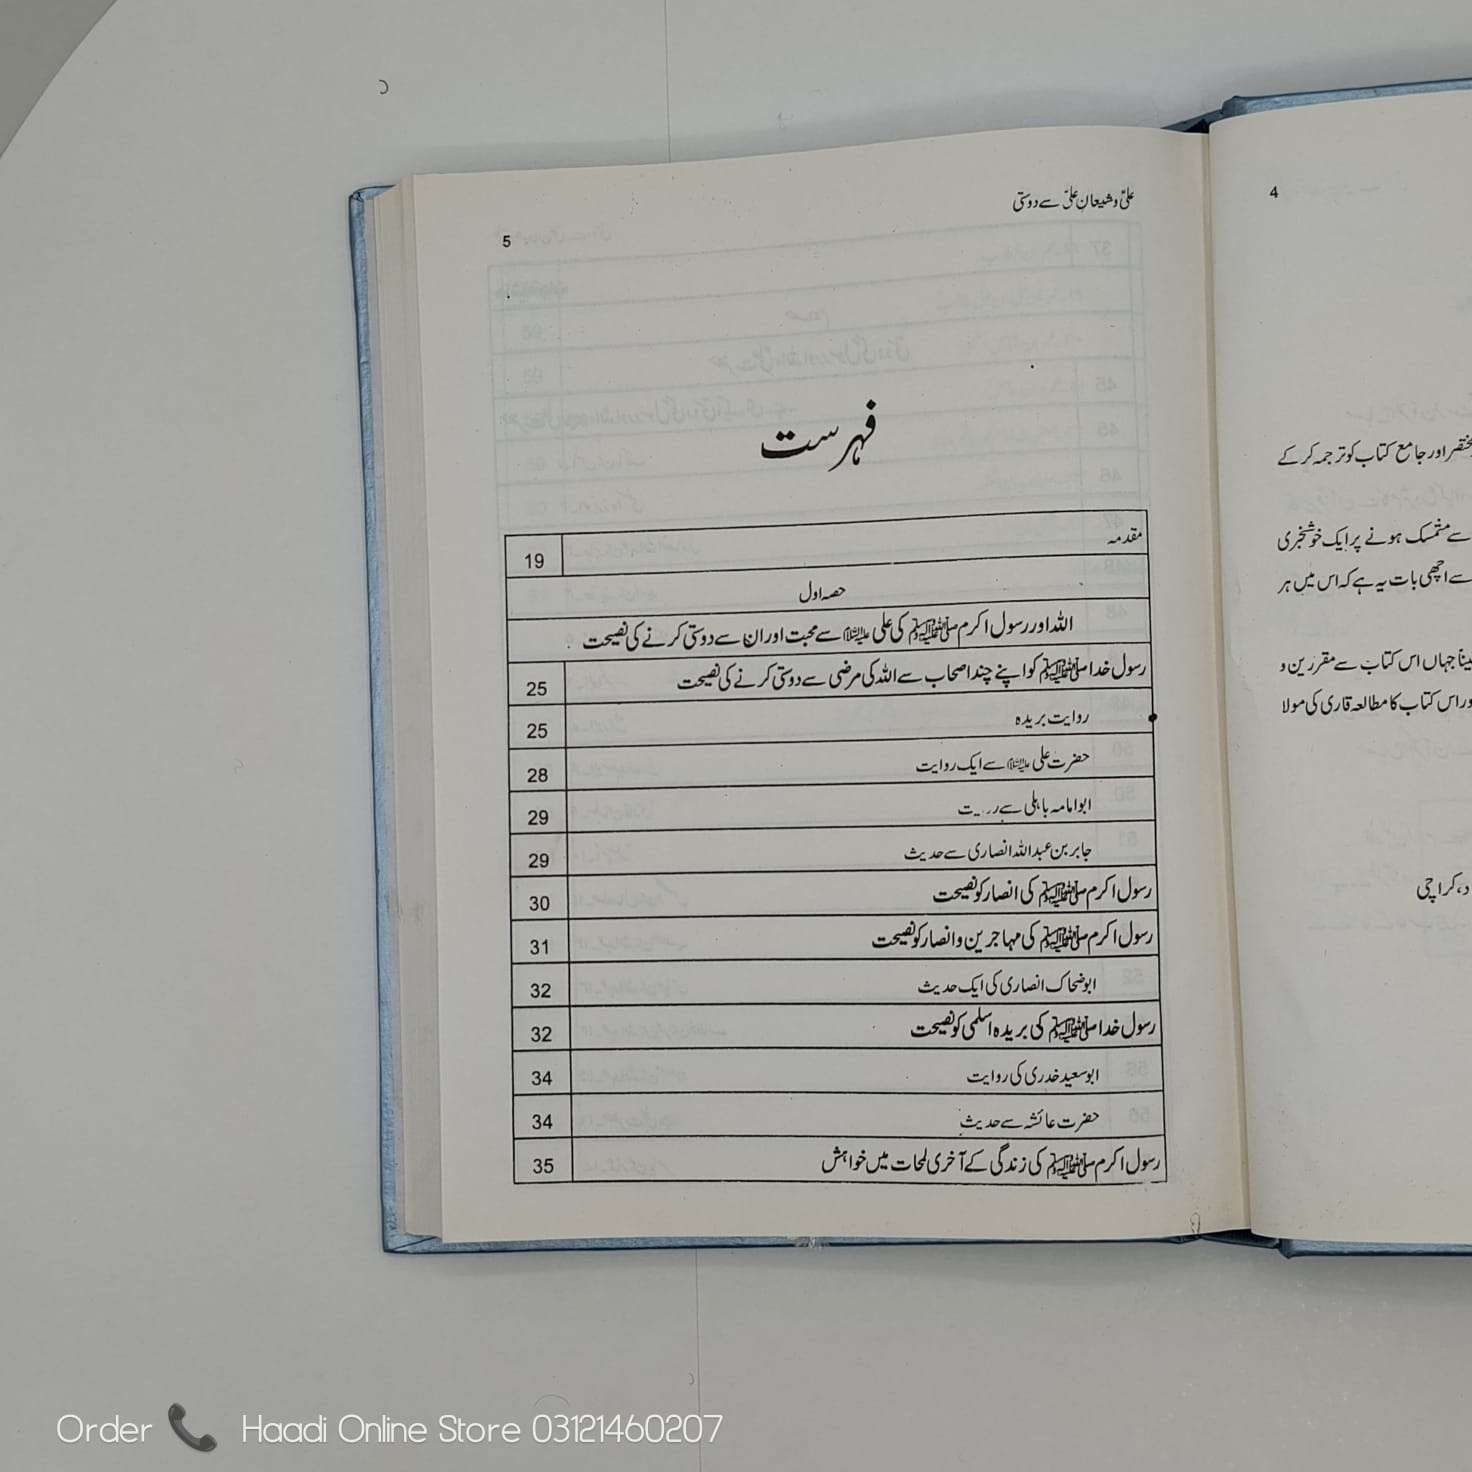 4
مختصر اور جامع کتاب کو ترجمہ کر کے
سے متمسک ہونے پر ایک خوشخبری
سے اچھی بات یہ ہے کہ اس میں ہر
جہاں اس کتاب سے مقررین و
اور اس کتاب کا مطالعہ قاری کی مولا
کراچی
علیؑ و شیعان علیؑ سے دوستی
5
فہرست
مقدمہ 19
حصہ اول
اللہ اور رسول اکرم ﷺ کی علی علیہ السلام سے محبت اور ان سے دوستی کرنے کی نصیحت
رسول خدا ﷺ کو اپنے چند اصحاب سے اللہ کی مرضی سے دوستی کرنے کی نصیحت 25
روایت بریدہ 25
حضرت علی علیہ السلام سے ایک روایت 28
ابوامامہ باہلی سے 29
جابر بن عبداللہ انصاری سے حدیث 29
رسول اکرم ﷺ کی انصار کو نصیحت 30
رسول اکرم ﷺ کی مہاجرین و انصار کو نصیحت 31
ابوضحاک انصاری کی ایک حدیث 32
رسول خدا ﷺ کی بریدہ اسلمی کو نصیحت 32
ابوسعید خدری کی روایت 34
حضرت عائشہ سے حدیث 34
رسول اکرم ﷺ کی زندگی کے آخری لمحات میں خواہش 35
Order Haadi Online Store 03121460207